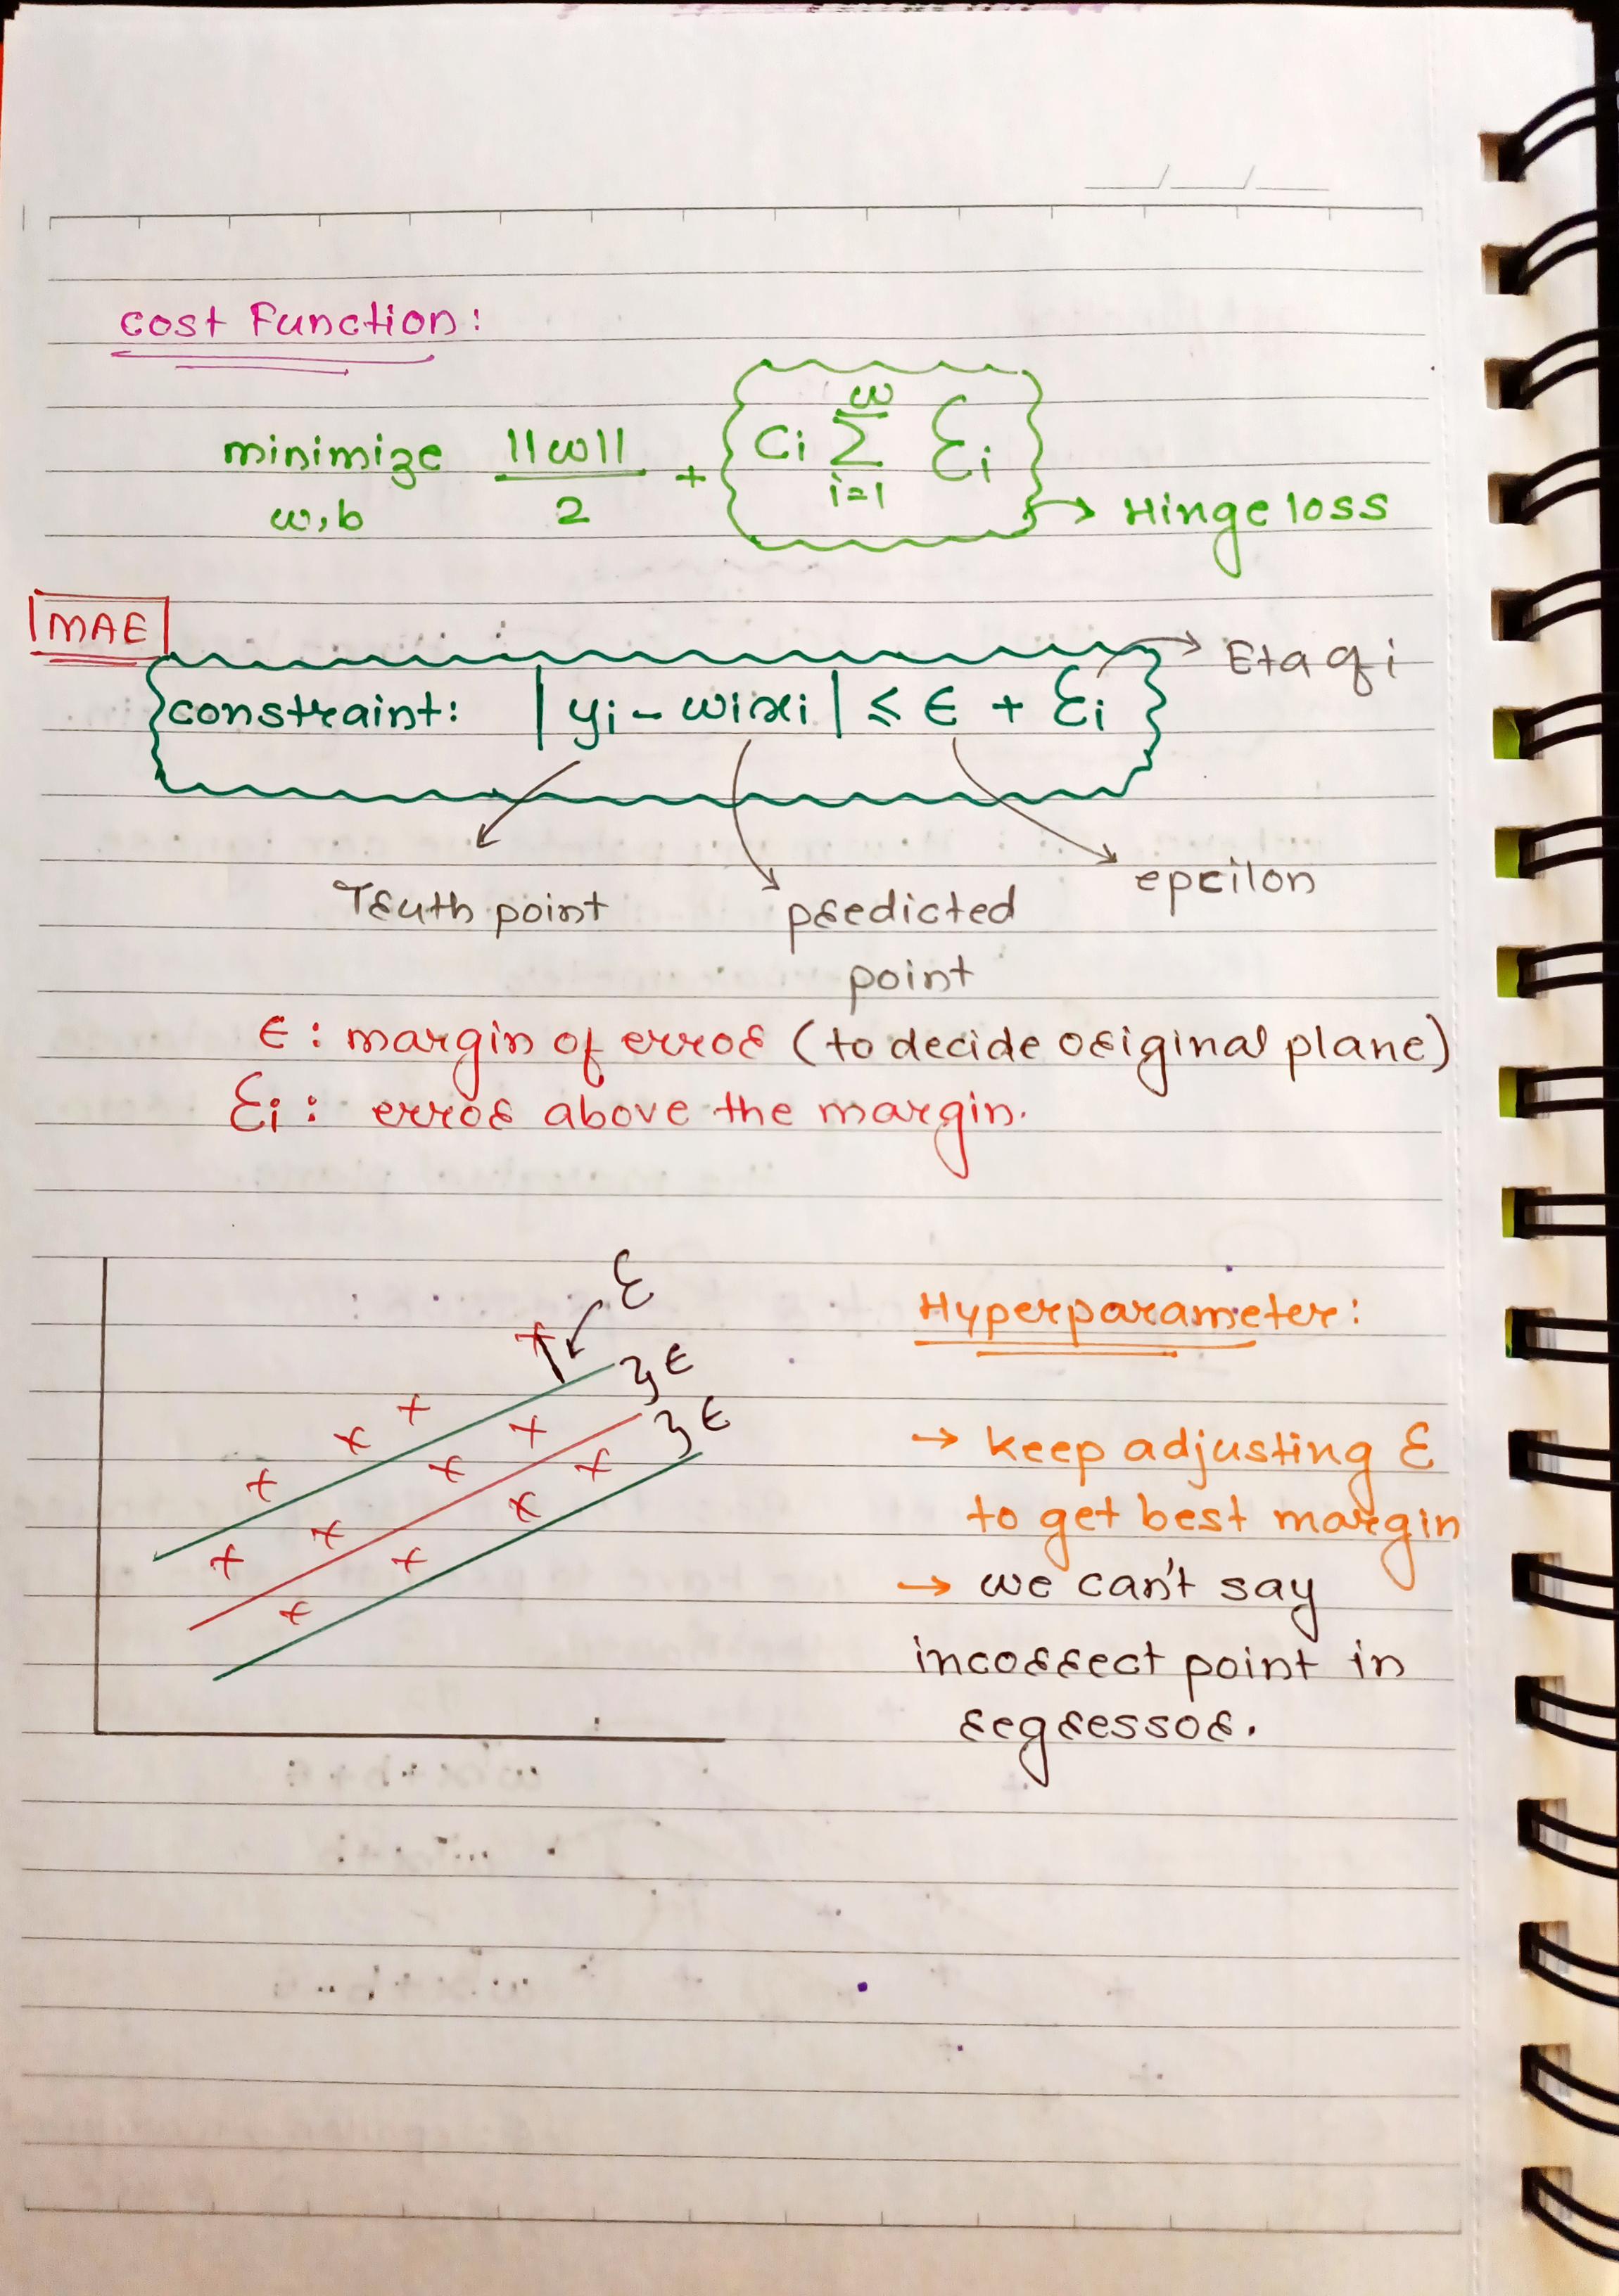 cost Function:
minimize w,b ||w||/2 + Ci ω Σ i=1 ξi → Hinge loss
MAE
constraint: |yi - wixi| ≤ ϵ + ξi → Eta of i
Truth point
predicted point
epcilon
ϵ: margin of error (to decide original plane)
ξi: error above the margin.
ξ
}ϵ
}ϵ
Hyperparameter:
→ keep adjusting ξ
to get best margin
→ we can't say
incorrect point in
regressor.